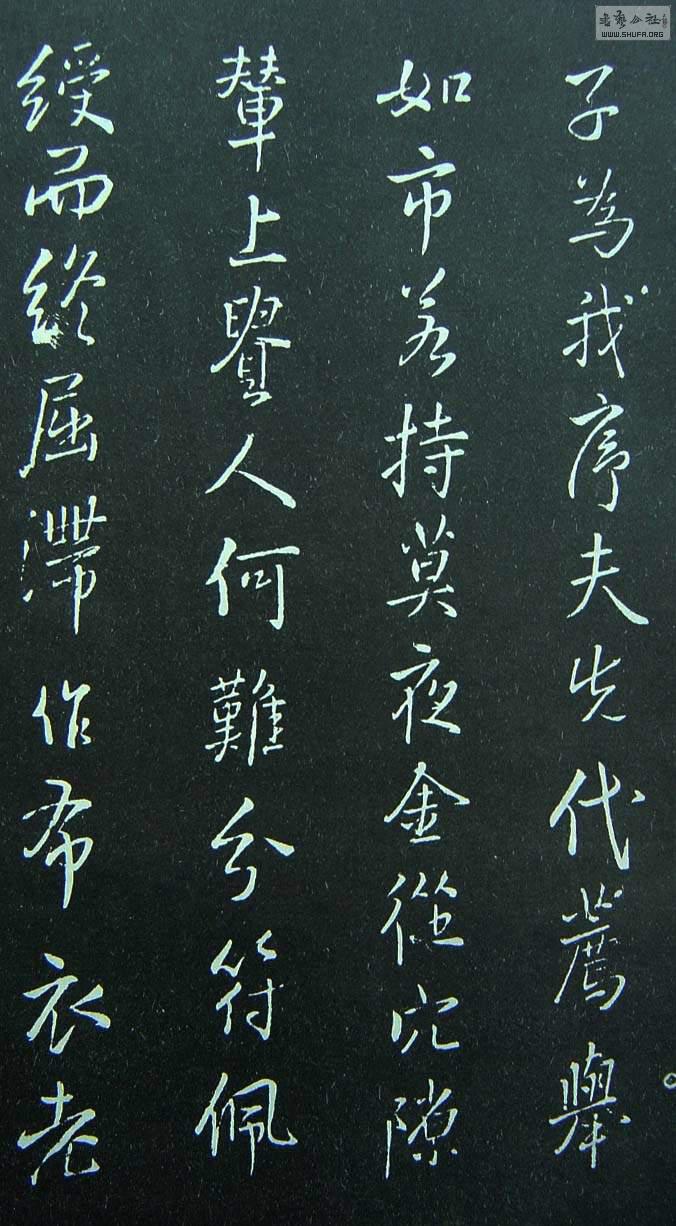 書藝公社
WWW.SHUFA.ORG
子為我序夫先代薦舉
如市若持莫夜金從穴隙
輦上貴人何難分符佩
綬而終屈滯作布衣老